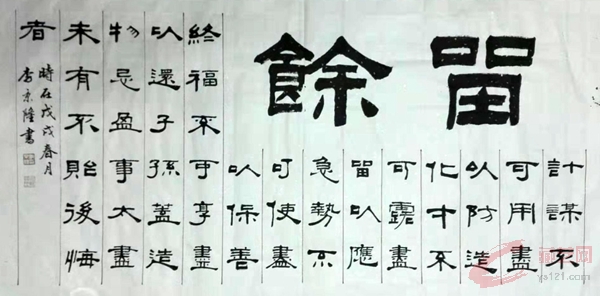 留餘
計謀不
可用盡
以防造
化才不
可露盡
留以應
急勢不
可使盡
以保善
終福不可享盡
以還子孫蓋造
物忌盈事太盡
未有不貽後悔
者
時在戊戌春月
李京隆書
ya121.com